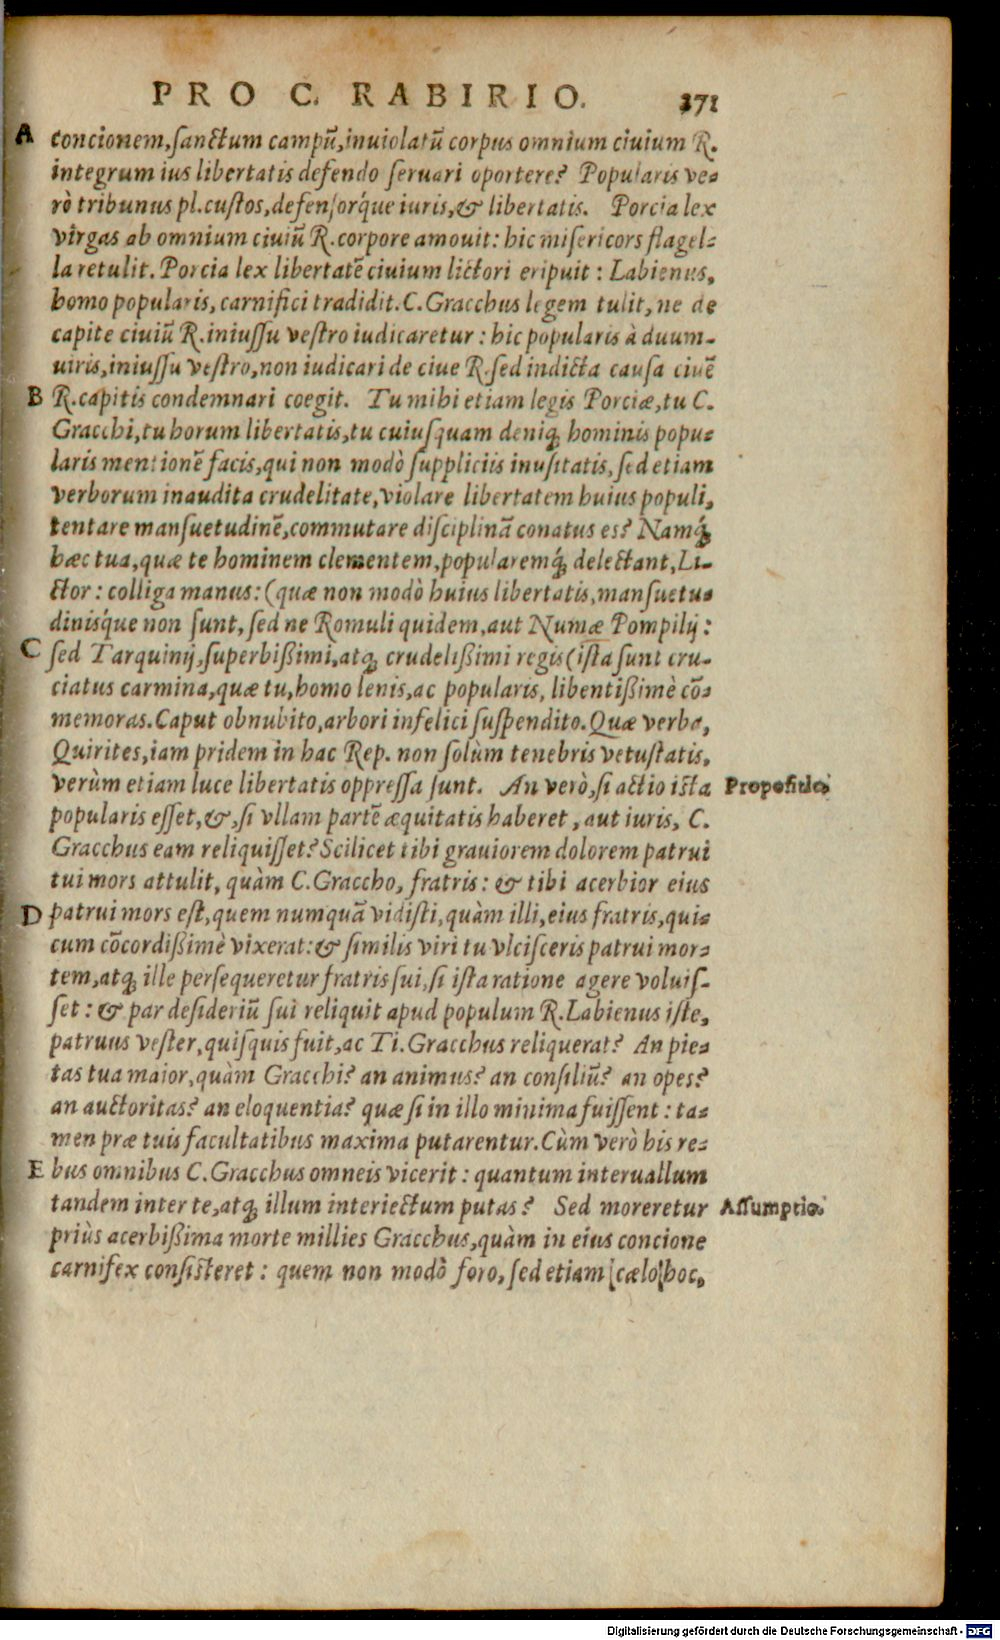 PRO C. RABIRIO. 371
A concionem, sanctum campũ, inuiolatũ corpus omnium ciuium R.
integrum ius libertatis defendo seruari oportere? Popularis ve-
rò tribunus pl. custos, defensorq́ue iuris, & libertatis. Porcia lex
virgas ab omnium ciuiũ R. corpore amouit: hic misericors flagel-
la retulit. Porcia lex libertatẽ ciuium lictori eripuit: Labienus,
homo popularis, carnifici tradidit. C. Gracchus legem tulit, ne de
capite ciuiũ R. iniussu vestro iudicaretur: hic popularis à duum-
uiris, iniussu vestro, non iudicari de ciue R. sed indicta causa ciuẽ
B R. capitis condemnari coegit. Tu mihi etiam legis Porciæ, tu C.
Gracchi, tu horum libertatis, tu cuiusquam deniq; hominis popu-
laris mentionẽ facis, qui non modò suppliciis inusitatis, sed etiam
verborum inaudita crudelitate, violare libertatem huius populi,
tentare mansuetudinẽ, commutare disciplinã conatus es? Namq́;
hæc tua, quæ te hominem clementem, popularemq́; delectant, Li-
ctor: colliga manus: (quæ non modò huius libertatis, mansuetu-
dinisq́ue non sunt, sed ne Romuli quidem, aut Numæ Pompilij:
C sed Tarquinij, superbißimi, atq; crudelißimi regis (ista sunt cru-
ciatus carmina, quæ tu, homo lenis, ac popularis, libentißimè cõ-
memoras. Caput obnubito, arbori infelici suspendito. Quæ verba,
Quirites, iam pridem in hac Rep. non solùm tenebris vetustatis,
verùm etiam luce libertatis oppressa sunt. An verò, si actio ista Propositio.
popularis esset, &, si vllam partẽ æquitatis haberet, aut iuris, C.
Gracchus eam reliquisset? Scilicet tibi grauiorem dolorem patrui
tui mors attulit, quàm C. Graccho, fratris: & tibi acerbior eius
D patrui mors est, quem numquã vidisti, quàm illi, eius fratris, qui-
cum cõcordißimè vixerat: & similis viri tu vlcisceris patrui mor-
tem, atq; ille persequeretur fratris sui, si ista ratione agere voluis-
set: & par desideriũ sui reliquit apud populum R. Labienus iste,
patruus vester, quisquis fuit, ac Ti. Gracchus reliquerat? An pie-
tas tua maior, quàm Gracchi? an animus? an consiliũ? an opes?
an auctoritas? an eloquentia? quæ si in illo minima fuissent: ta-
men præ tuis facultatibus maxima putarentur. Cùm verò his re-
E bus omnibus C. Gracchus omneis vicerit: quantum interuallum
tandem inter te, atq; illum interiectum putas? Sed moreretur Assumptio.
priùs acerbißima morte millies Gracchus, quàm in eius concione
carnifex consisteret: quem non modò foro, sed etiam [cælo] hoc,
Digitalisierung gefördert durch die Deutsche Forschungsgemeinschaft - DFG